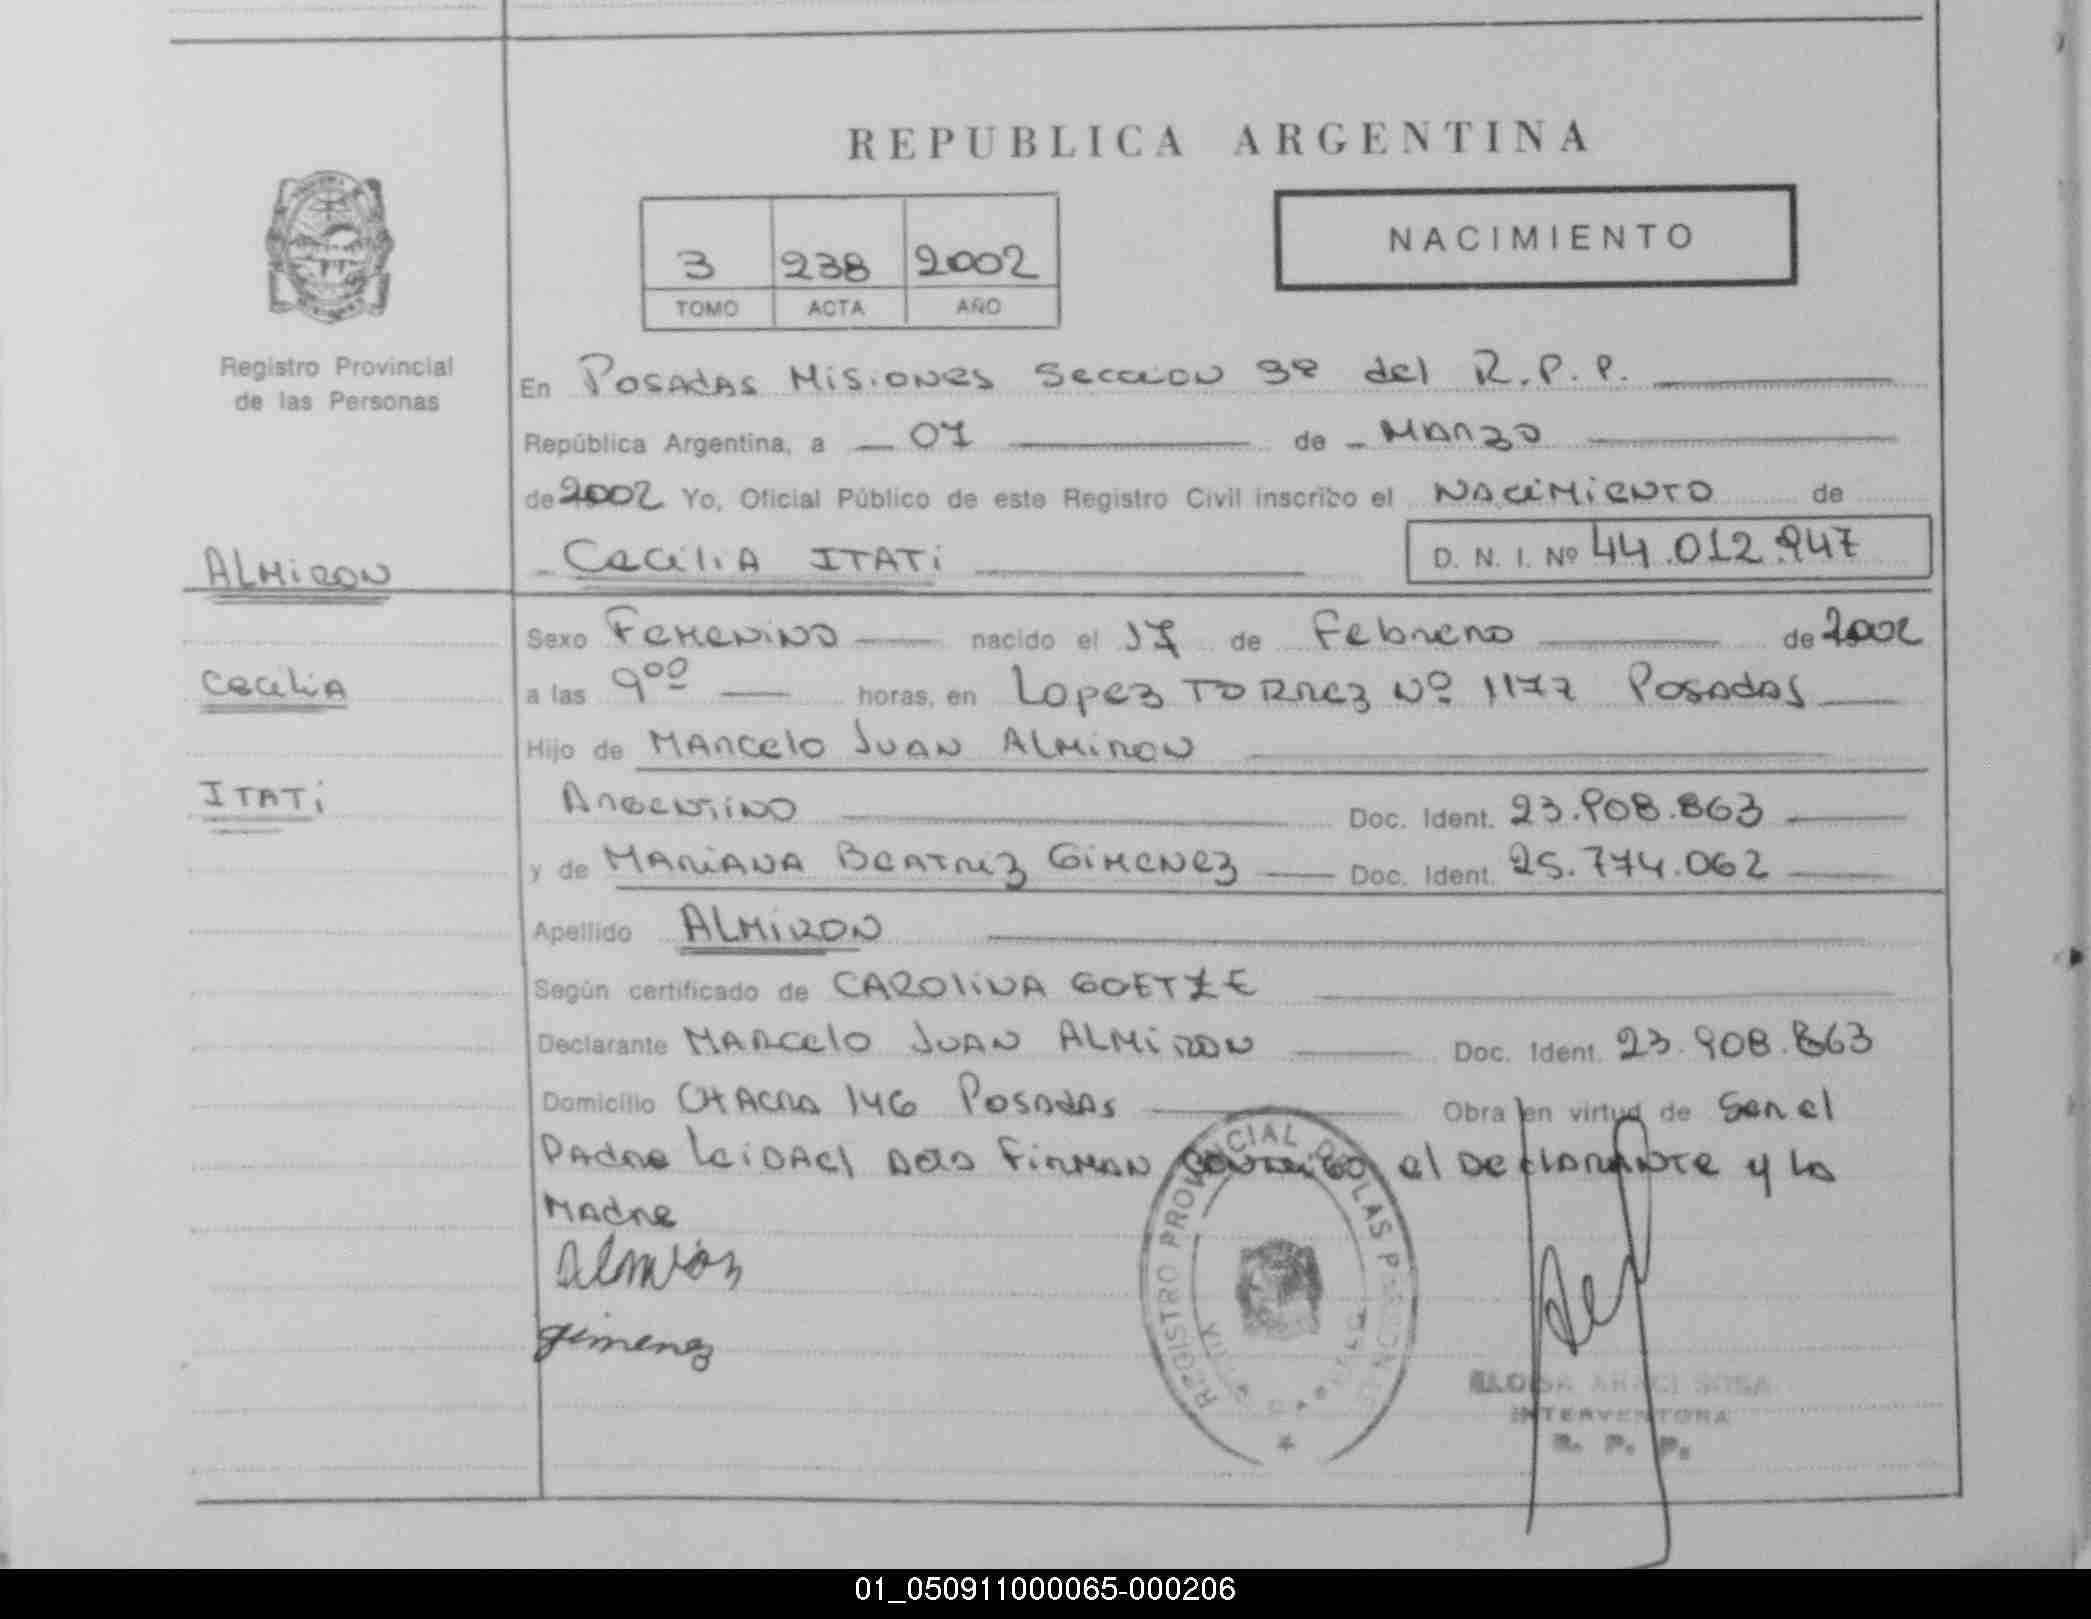 REPUBLICA ARGENTINA
3 238 2002
TOMO ACTA AÑO
NACIMIENTO
Registro Provincial
de las Personas
En Posadas Misiones Seccion 3ª del R.P.P.
República Argentina, a 07 de Marzo
de 2002 Yo, Oficial Público de este Registro Civil inscribo el Nacimiento de
ALMIRON
Cecilia ITATI D. N. I. Nº 44.012.947
Sexo Femenino nacido el 17 de Febrero de 2002
Cecilia
a las 9ºº horas, en Lopez Torrez Nº 1177 Posadas
Hijo de Marcelo Juan Almiron
ITATI
Argentino Doc. Ident. 23.908.863
y de Mariana Beatriz Gimenez Doc. Ident. 25.774.062
Apellido ALMIRON
Según certificado de CAROLINA GOETZE
Declarante Marcelo Juan ALMIRON Doc. Ident. 23.908.863
Domicilio Chacra 146 Posadas Obra en virtud de Ser el
Padre Leida el Acta Firman Conmigo el Declarante y la
Madre
Almirón
Gimenez
REGISTRO PROVINCIAL DE LAS PERSONAS
ELOISA ARACI SOSA
INTERVENTORA
R. P. P.
01_050911000065-000206